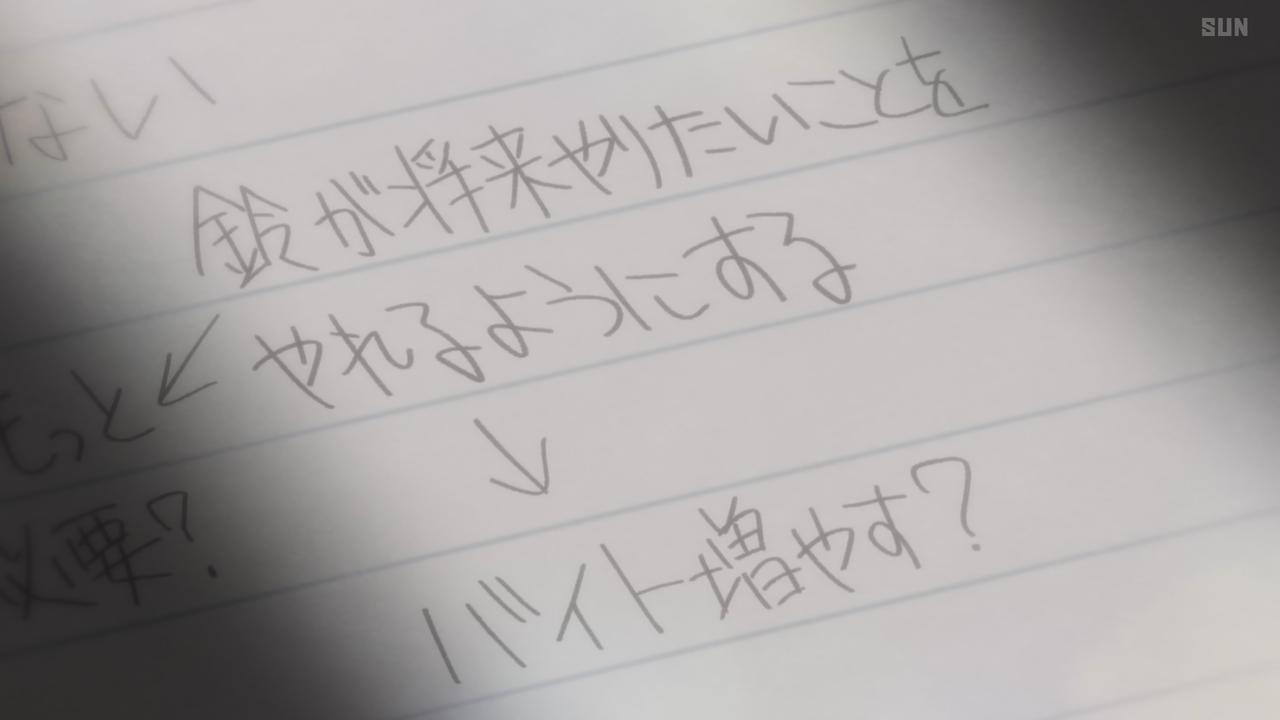 SUN
ない
鈴が将来やりたいことを
やれるようにする
もっと
必要?
バイト増やす?